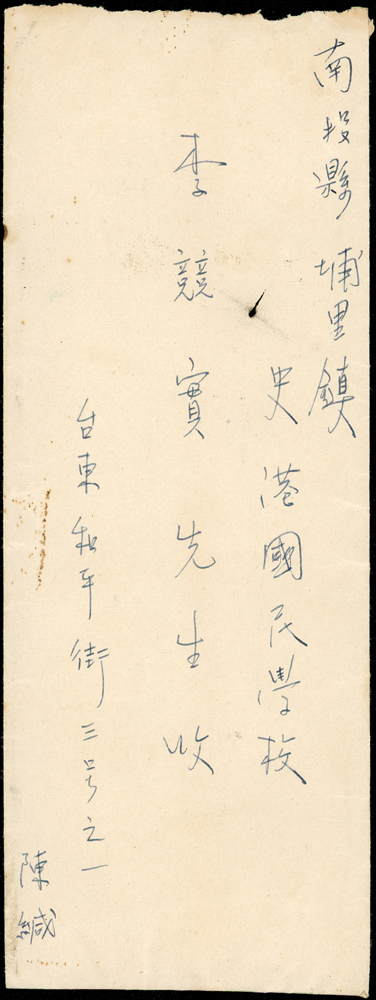 南投縣埔里鎮
史港國民學校
李競實先生收
台東和平街三号之一
陳緘